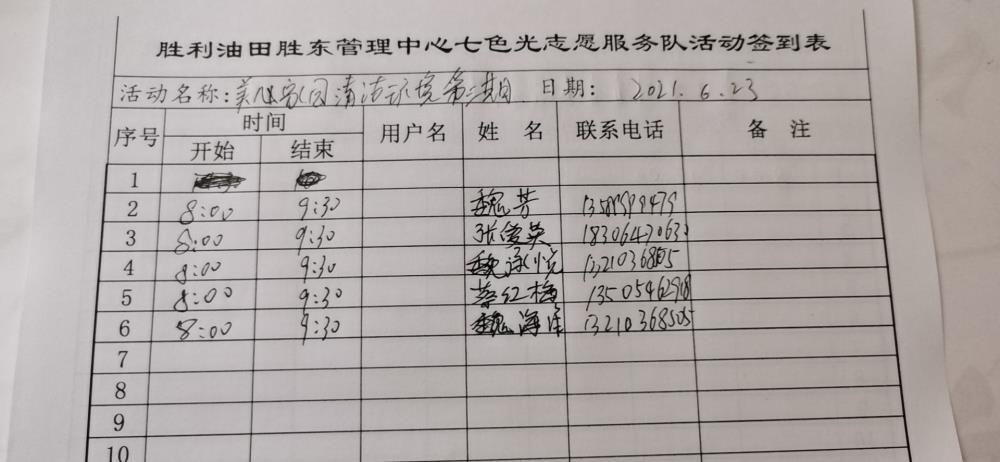 胜利油田胜东管理中心七色光志愿服务队活动签到表
活动名称: 美化家园清洁环境第三期 日期: 2021.6.23
序号 时间 用户名 姓 名 联系电话 备 注
开始 结束
1
2 8:00 9:30 魏芳
3 8:00 9:30 张爱英
4 8:00 9:30 魏
5 8:00 9:30 蔡红梅
6 8:00 9:30 魏海洋 13210368505
7
8
9
10